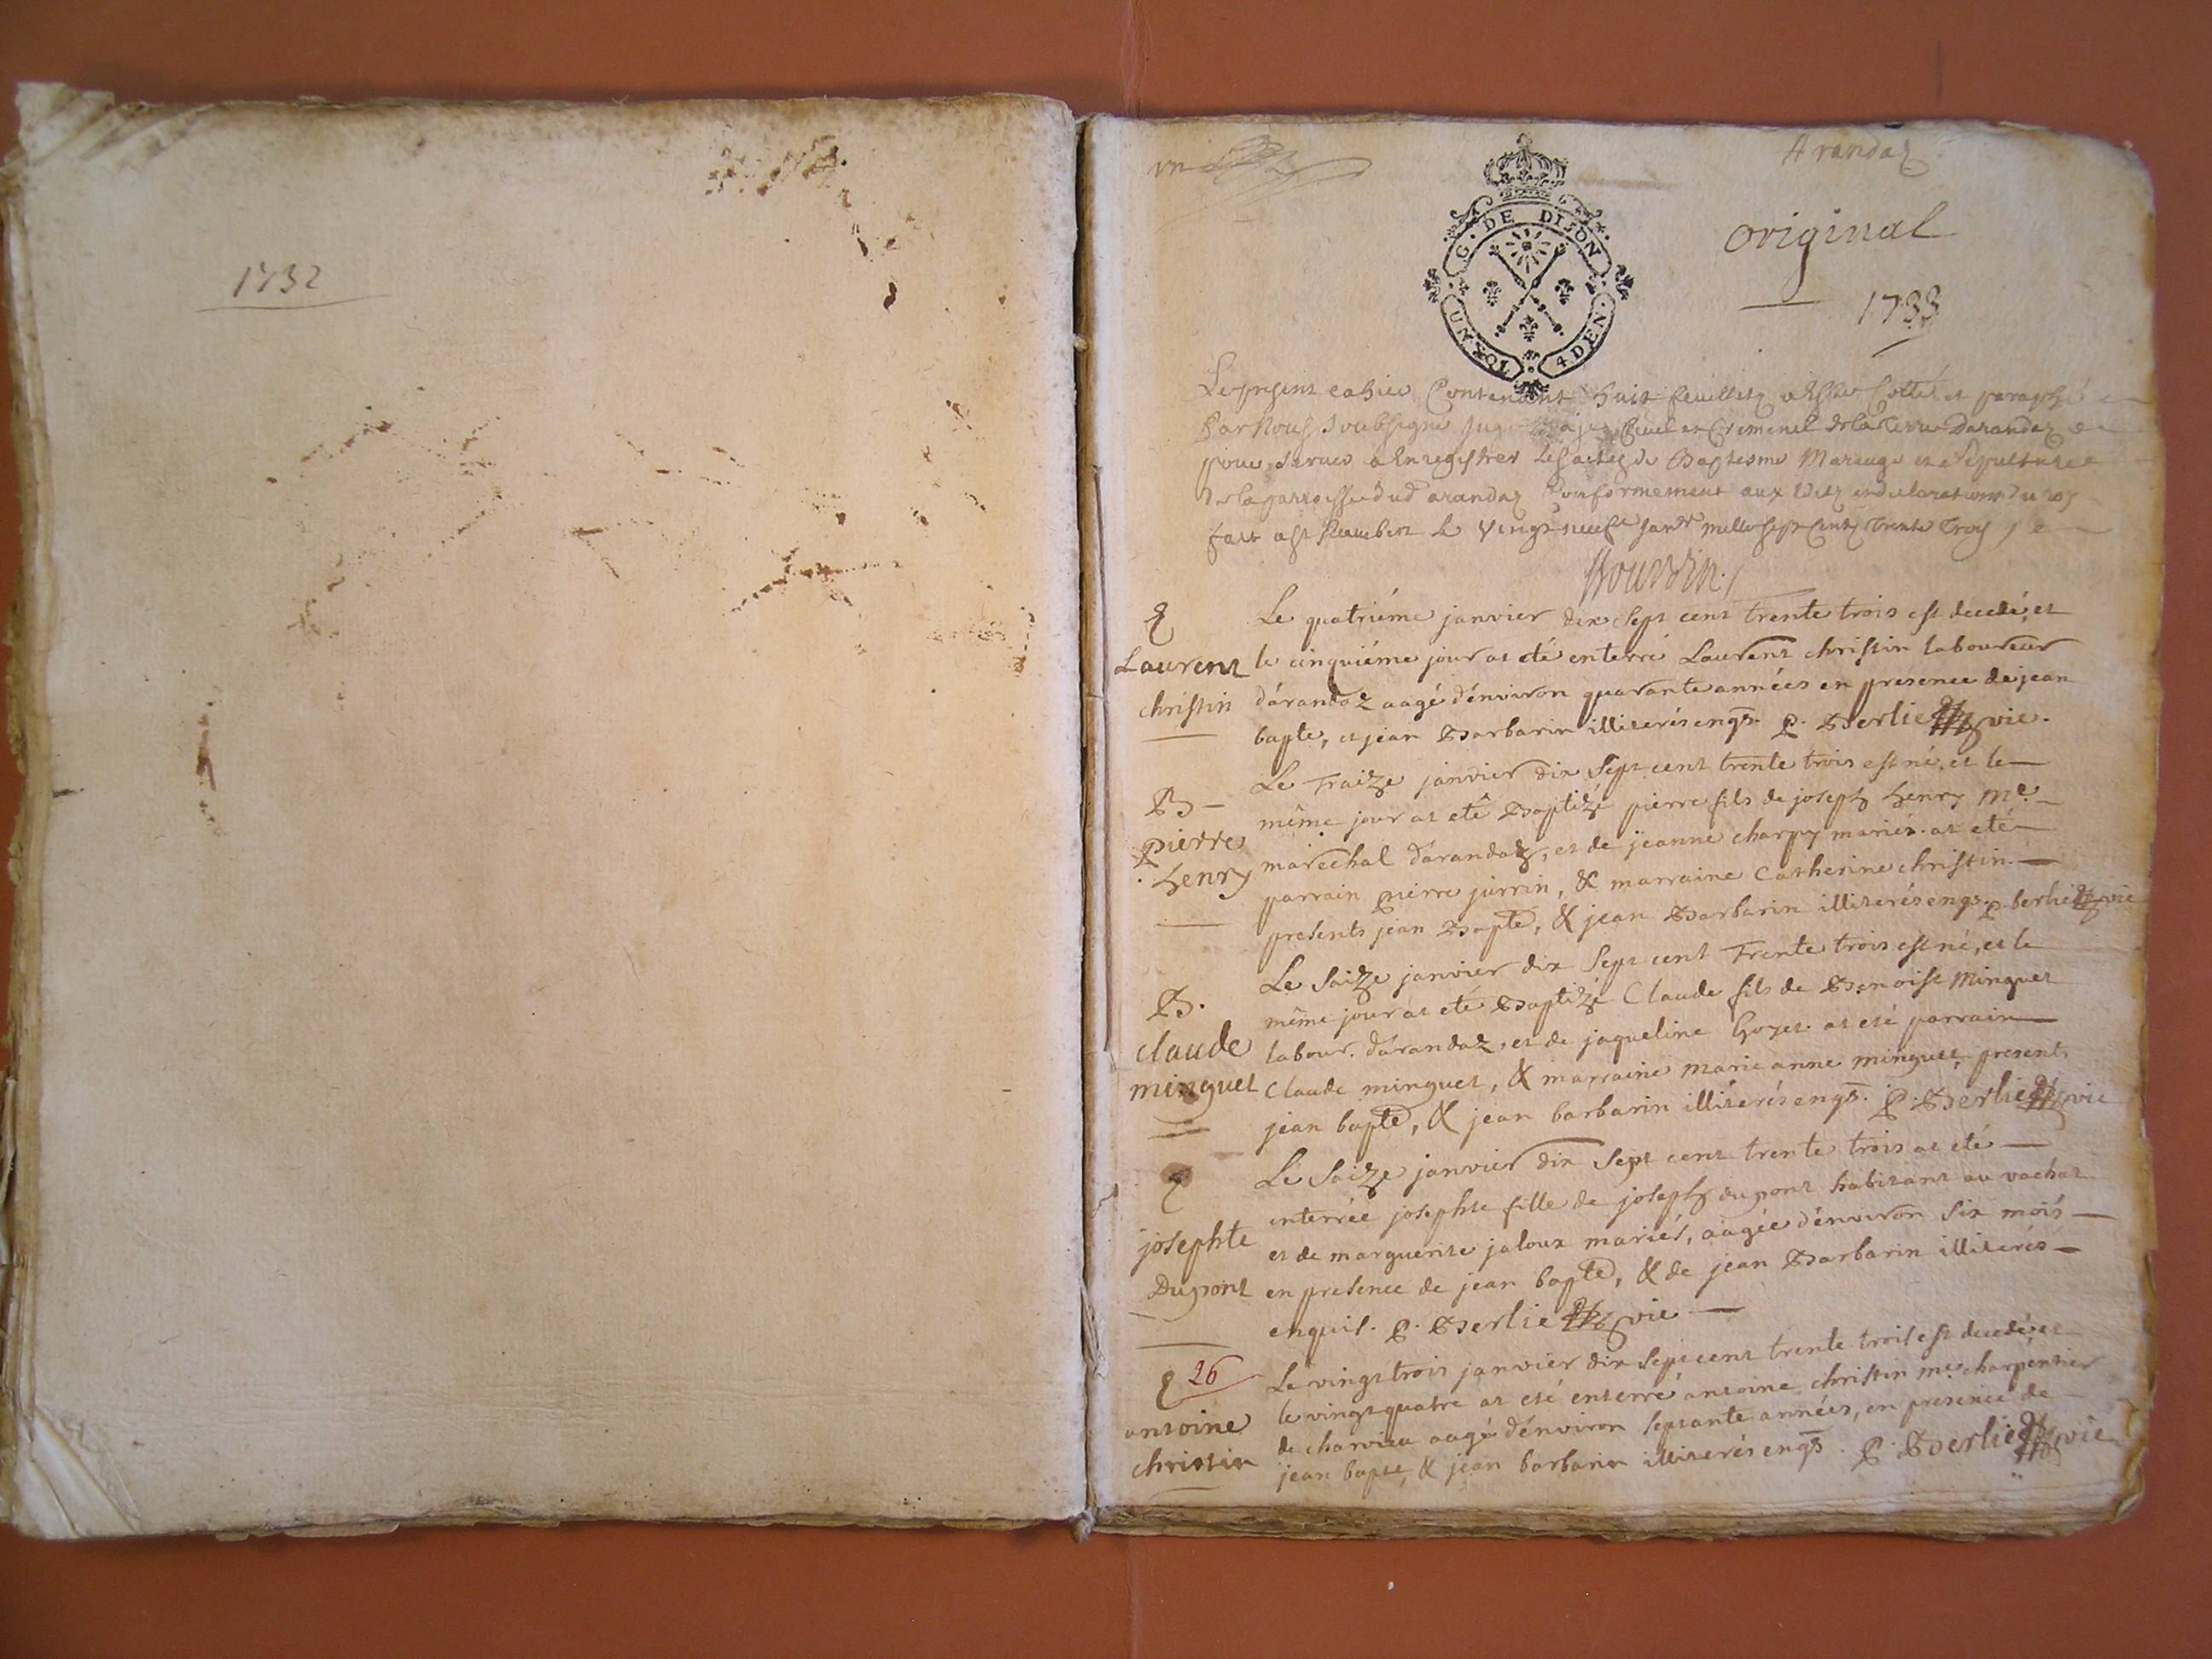 1732
vn
Arandaz
G. DE DIJON
UN SOL
4 DEN.
original
1733
Le present cahier Contenant huit feuilletz a esté Cotté et paraphé
Par Nous Soubsigné Juge Maje Civil et Criminel de la Terre Darandaz
pour servir a Enregistrer les actes de Baptesme Mariage et Sepulture
de la parroisse dud arandaz Conformement aux Editz et declarations du roy
fait a St Rambert le Vingt neufe janvr mille sept Centz Trente Troys
Laurent
christin
Le quatriéme janvier dix sept cent trente trois est decedé, et
le cinquiéme jour at eté enterré Laurent christin laboureur
d'arandaz aagé d'environ quarante années en presence de jean
bapte, et jean Barbarin illiterés enqs. P. Berlie vic.
B
pierre
henry
Le Traize janvier dix sept cent trente trois est né, et le
même jour at eté Baptizé pierre fils de joseph henry Me.
marechal d'arandaz, et de jeanne charpy mariés. at eté
parrain pierre jurrin, & marraine Catherine christin.
presents jean Bapte, & jean Barbarin illiterés enqs. P. berlie vic
B.
claude
minguet
Le Saize janvier dix sept cent Trente trois est né, et le
même jour at eté Baptizé Claude fils de Benoist Minguet
labour. d'arandaz, et de jaqueline Goyet. at eté parrain
Claude minguet, & marraine marie anne minguet, presents
jean bapte, & jean barbarin illiterés enqs. P. Berlie vic
josephte
Dupont
Le Saize janvier dix sept cent trente trois at eté
enterrée josephte fille de joseph dupont habitant au vachat
et de marguerite jaloux mariés, aagée d'environ six mois
en presence de jean bapte, & de jean Barbarin illiterés
enquis. P. Berlie vic
26
antoine
christin
Le vingt trois janvier dix sept cent trente trois est decedé, et
le vingt quatre at eté enterré antoine christin me. charpentier
de charvieu aagé d'environ septante années, en presence de
jean bapte, & jean barbarin illiterés enqs. P. Berlie vic